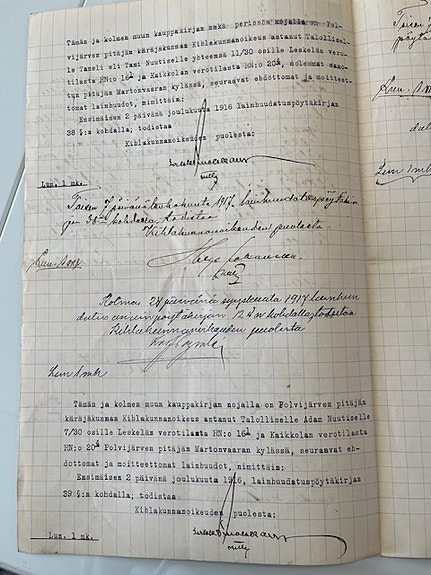 Tämän ja kolmen muun kauppakirjan sekä perinnön nojalla on Pol-
vijärven pitäjän käräjäkunnan Kihlakunnanoikeus antanut Talollisel-
le Taneli eli Tani Nuutiselle yhteensä 11/30 osille Leskelän vero-
tilasta RN:o 16 ja Kaikkolan verotilasta RN:o 20
pitäjän Martonvaaran kylässä, seuraavat ehdottomat ja moitteet-
tomat lainhuudot, nimittäin:
Ensimäisen 2 päivänä joulukuuta 1916 lainhuudatuspöytäkirjan
38 §:n kohdalla; todistaa
Kihlakunnanoikeuden puolesta:
Lun. 1 mk.
Toisen 7 päivänä toukokuuta 1917, lainhuudatuspöytäkir-
jan 38 kohdalla, todistaa
Kihlakunnanoikeuden puolesta
Kolmannen 24 päivänä syyskuuta 1917 lainhuu-
datusasiainpöytäkirjan 12 §:n kohdalla; todistaa
Kihlakunnanoikeuden puolesta
Lun 1 mk
Tämän ja kolmen muun kauppakirjan nojalla on Polvijärven pitäjän
käräjäkunnan Kihlakunnanoikeus antanut Talolliselle Adam Nuutiselle
7/30 osille Leskelän verotilasta RN:o 16 ja Kaikkolan verotilasta
RN:o 20 Polvijärven pitäjän Martonvaaran kylässä, seuraavat eh-
dottomat ja moitteettomat lainhuudot, nimittäin:
Ensimäisen 2 päivänä joulukuuta 1916, lainhuudatuspöytäkirjan
39 §:n kohdalla; todistaa
Kihlakunnanoikeuden puolesta:
Lun. 1 mk.